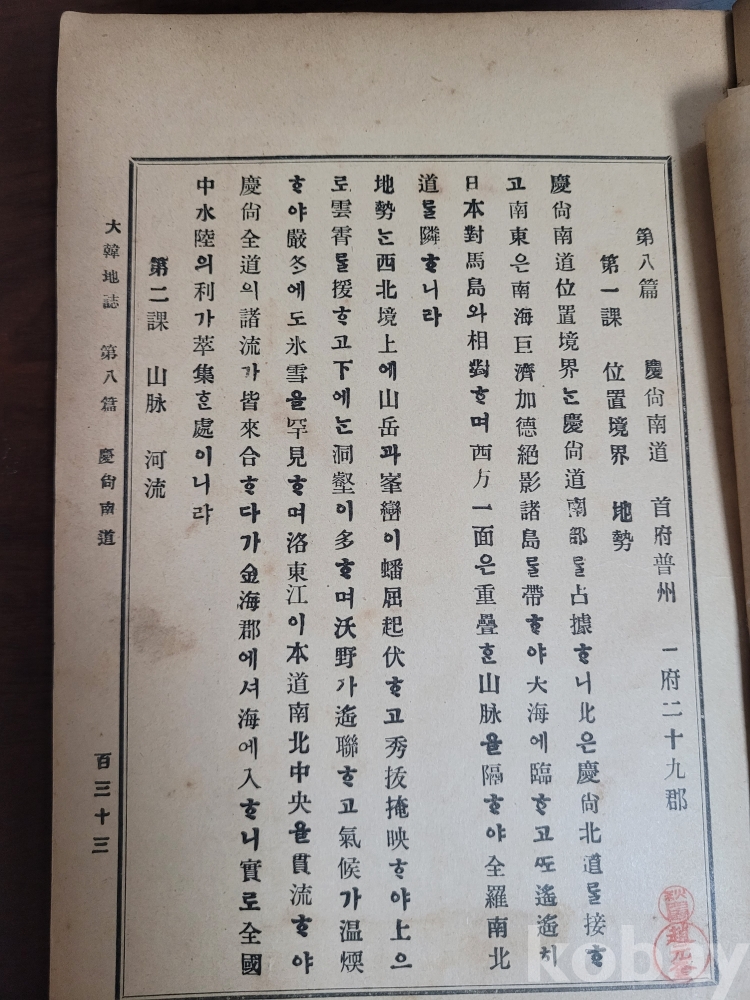 第八篇 慶尙南道 首府普州 一府二十九郡
第一課 位置境界 地勢
慶尙南道位置境界ᄂᆞᆫ慶尙道南部ᄅᆞᆯ占據ᄒᆞ니北은慶尙北道ᄅᆞᆯ接ᄒᆞ
고南東은南海巨濟加德絕影諸島ᄅᆞᆯ帶ᄒᆞ야大海에臨ᄒᆞ고ᄯᅩ遙遙치
日本對馬島와相對ᄒᆞ며西方一面은重疊ᄒᆞᆫ山脉을隔ᄒᆞ야全羅南北
道ᄅᆞᆯ隣ᄒᆞ니라
地勢ᄂᆞᆫ西北境上에山岳과峯巒이蟠屈起伏ᄒᆞ고秀拔掩映ᄒᆞ야上으
로雲霄ᄅᆞᆯ援ᄒᆞ고下에ᄂᆞᆫ洞壑이多ᄒᆞ며沃野가遙聯ᄒᆞ고氣候가温煗
ᄒᆞ야嚴冬에도氷雪을罕見ᄒᆞ며洛東江이本道南北中央을貫流ᄒᆞ야
慶尙全道의諸流가皆來合ᄒᆞ다가金海郡에셔海에入ᄒᆞ니實로全國
中水陸의利가萃集ᄒᆞᆫ處이니라
第二課 山脉 河流
大韓地誌 第八篇 慶尙南道 百三十三
kobay